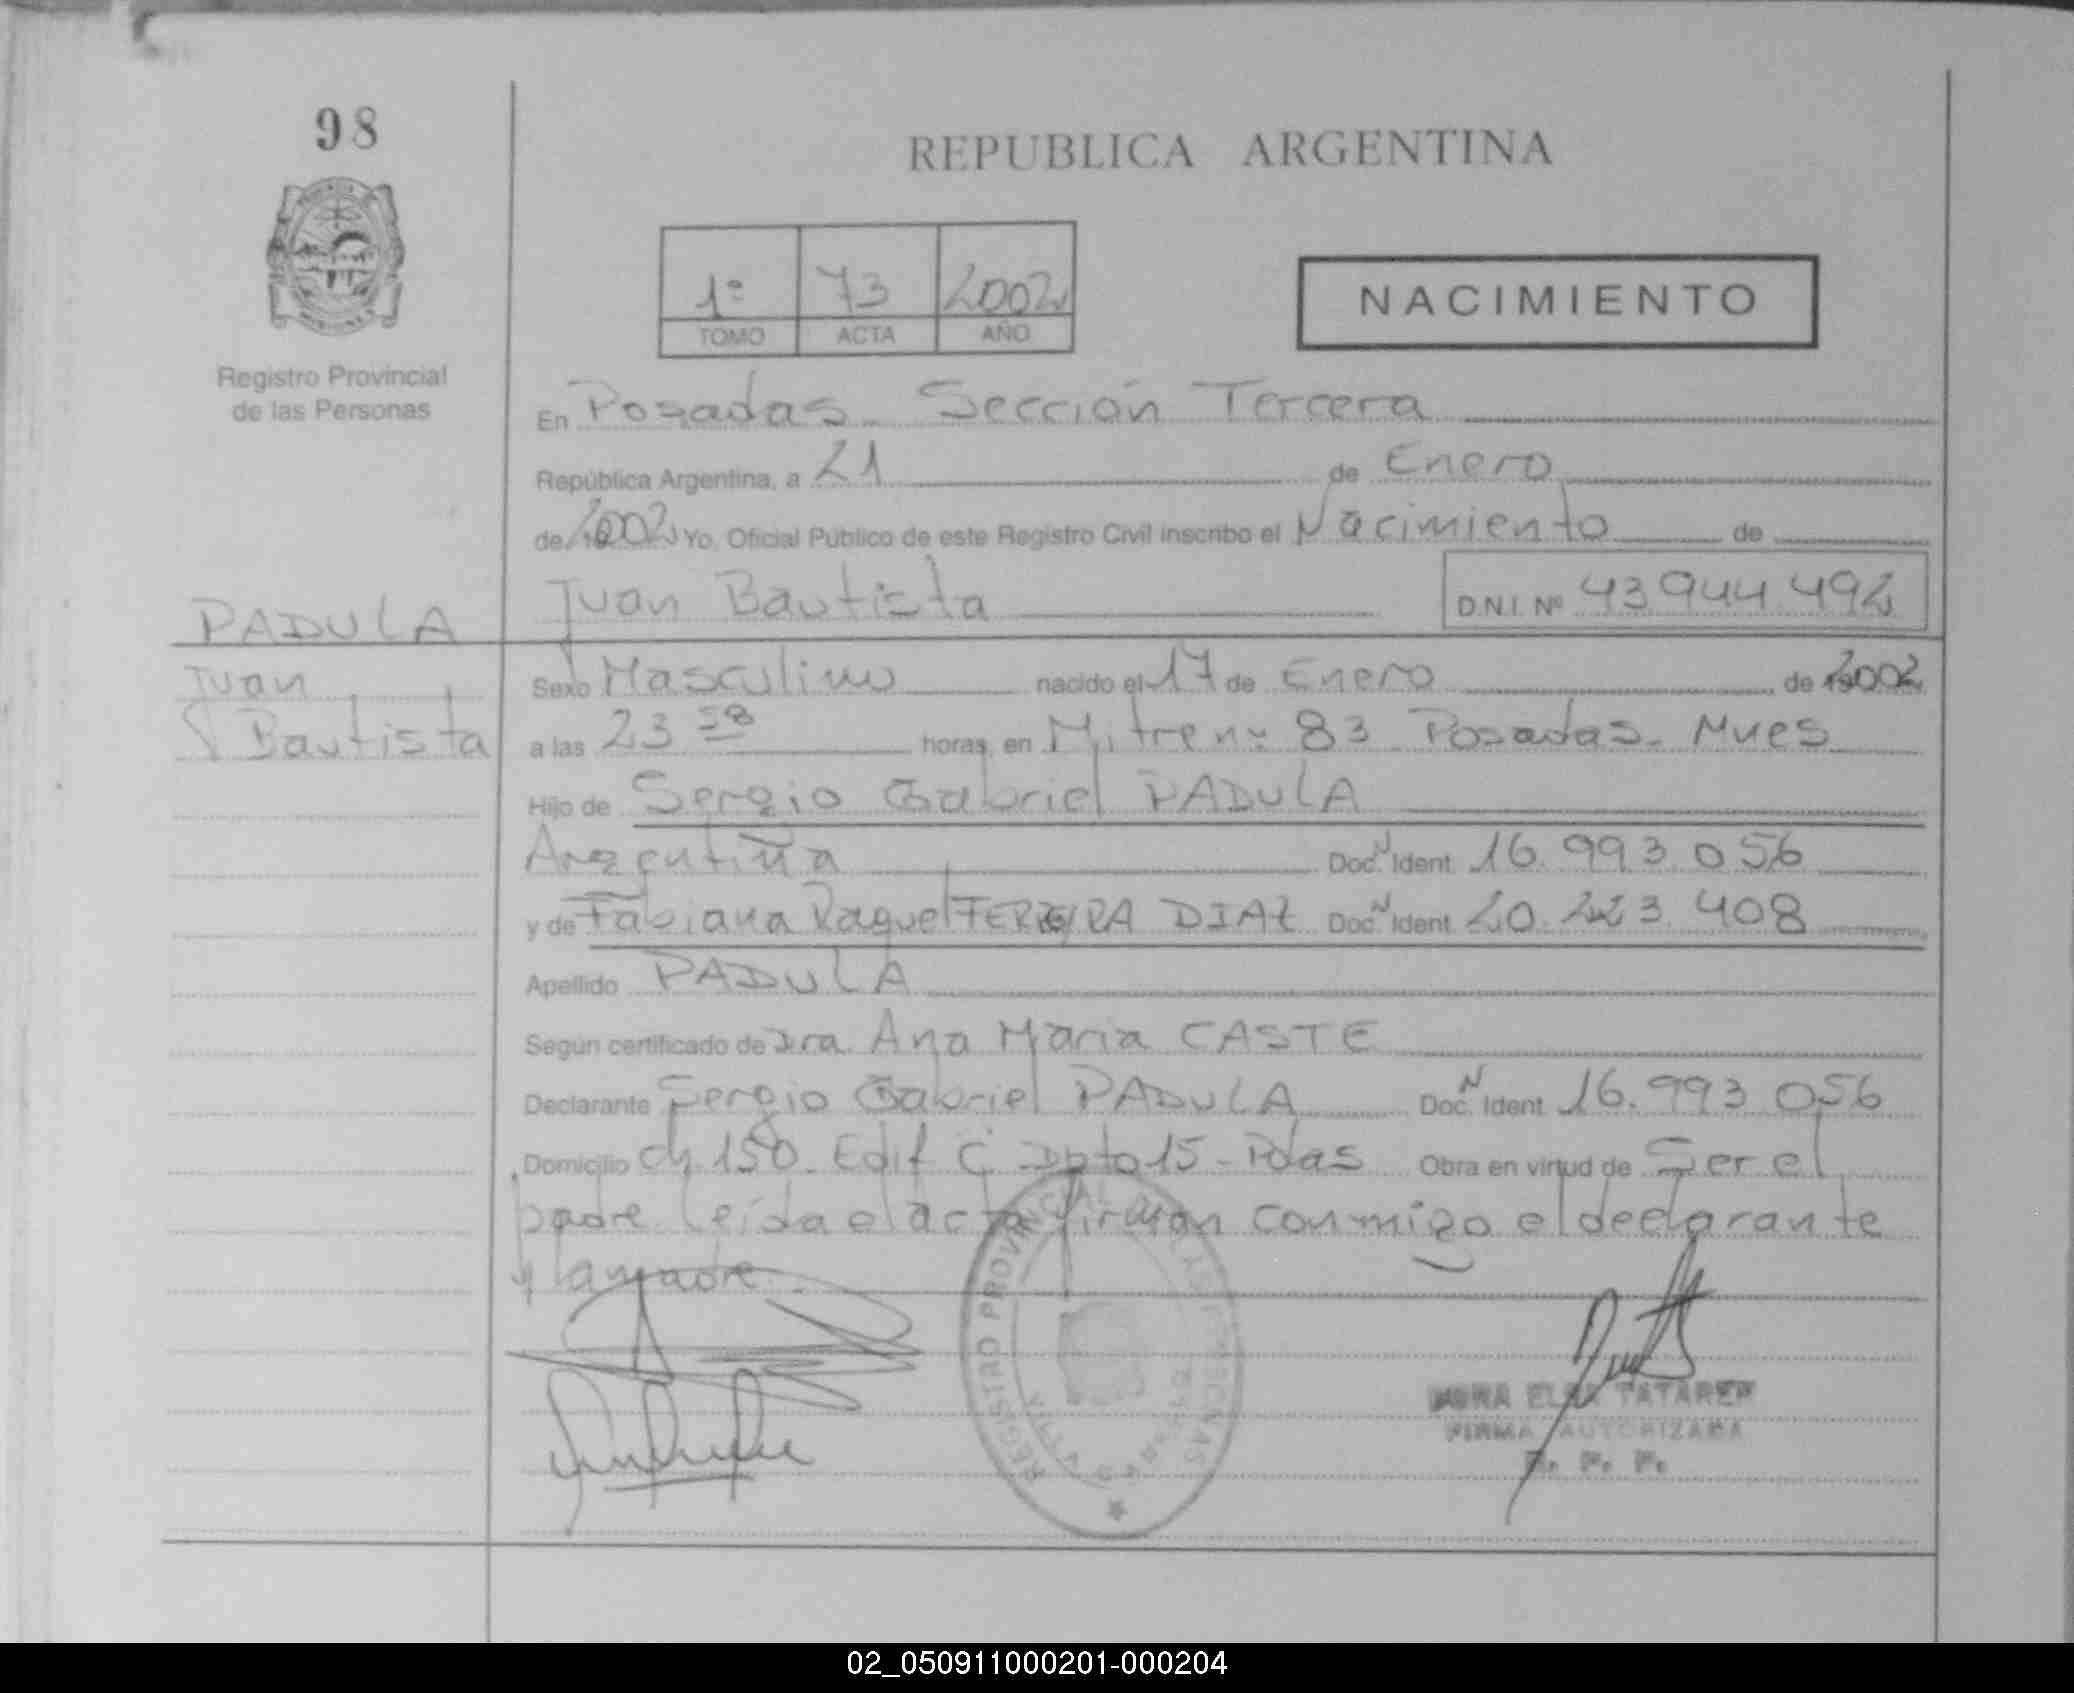 98
REPUBLICA ARGENTINA
1º 73 2002
TOMO ACTA AÑO
NACIMIENTO
Registro Provincial
de las Personas
En Posadas - Sección Tercera
República Argentina, a 21 de Enero
de 2002 Yo, Oficial Público de este Registro Civil inscribo el Nacimiento de
Juan Bautista D.N.I. Nº 43 944 492
PADULA
Juan
Bautista
Sexo Masculino nacido el 17 de Enero de 2002
a las 23 58 horas, en Mitre nº 83 Posadas - Mnes
Hijo de Sergio Gabriel PADULA
Argentina Doc. N Ident 16.993.056
y de Fabiana Raquel FERREIRA DIAZ Doc. N Ident 20.223.408
Apellido PADULA
Según certificado de Dra. Ana Maria CASTE
Declarante Sergio Gabriel PADULA Doc. N Ident 16.993 056
Domicilio Ch 150 - Edif C Dpto 15 - Pdas Obra en virtud de Ser el
padre. Leída el acta firman conmigo el declarante
y la madre.
REGISTRO PROVINCIAL DE LAS PERSONAS
ELBA TATAREN
FIRMA AUTORIZADA
R. P. P.
02_050911000201-000204